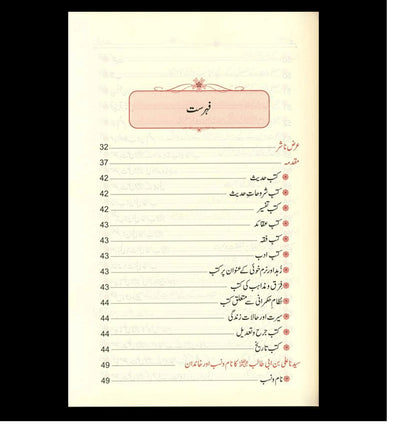 فہرست
عرض ناشر 32
مقدمہ 37
کتب حدیث 42
کتب شروحات حدیث 42
کتب تفسیر 42
کتب عقائد 43
کتب فقہ 43
کتب ادب 43
زہد اور نرم خوئی کے عنوان پر کتب 43
فرق و مذاہب کی کتب 43
نظام حکمرانی سے متعلق کتب 44
سیرت اور حالات زندگی 44
کتب جرح و تعدیل 44
کتب تاریخ 44
سیدنا علی بن ابی طالب کا نام و نسب اور خاندان 49
نام و نسب 49